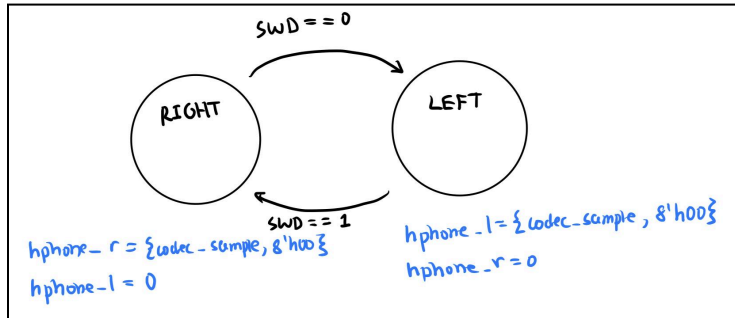 SWD==0
RIGHT
LEFT
SWD==1
hphone_r = {codec_sample, 8'h00}
hphone_l = 0
hphone_l = {codec_sample, 8'h00}
hphone_r = 0